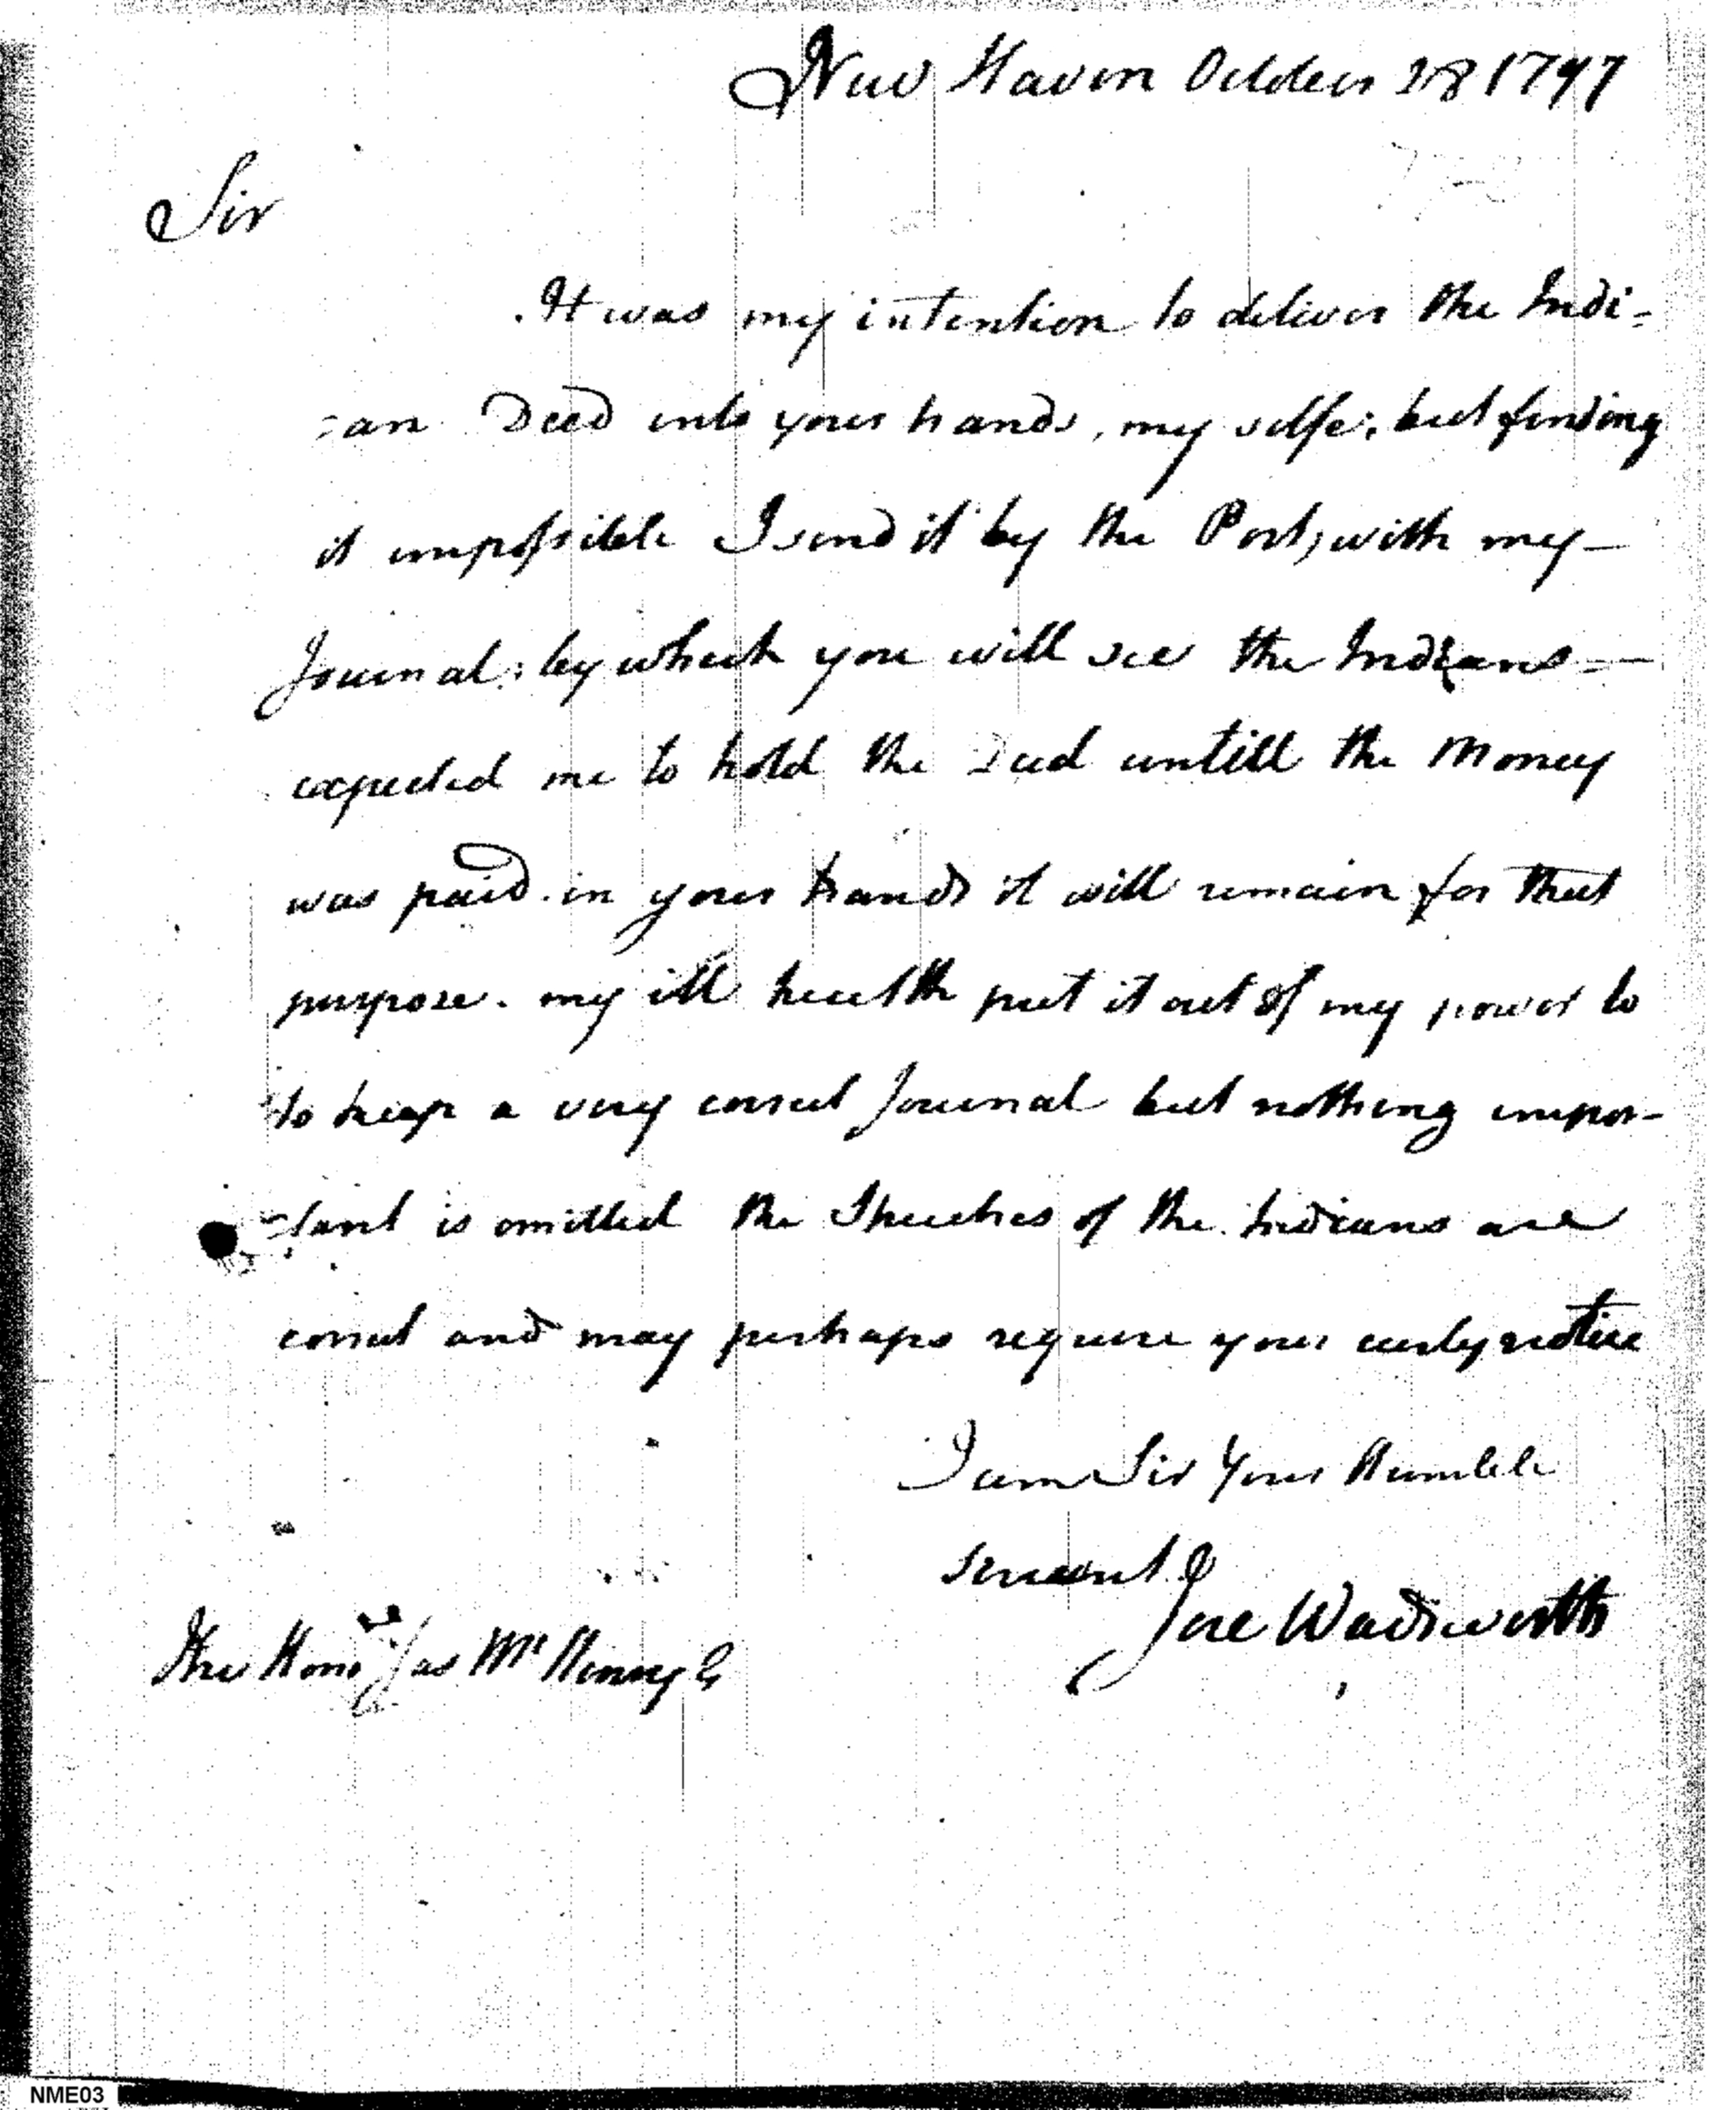 New Haven October 28 1797
Sir
It was my intention to deliver the Indi=
=an Deed into your hands, my selfe; but finding
it impossible I send it by the Post, with my—
Journal: by which you will see the Indians—
expected me to hold the Deed untill the Money
was paid. in your hands it will remain for that
purpose. my ill health put it out of my power to
to keep a very correct Journal but nothing impor-
-tant is omitted the Speeches of the Indians are
correct and may perhaps require your early notice
I am Sir Your Humble
Servant
Jere Wadsworth
The Honble Jas McHenry
NME03